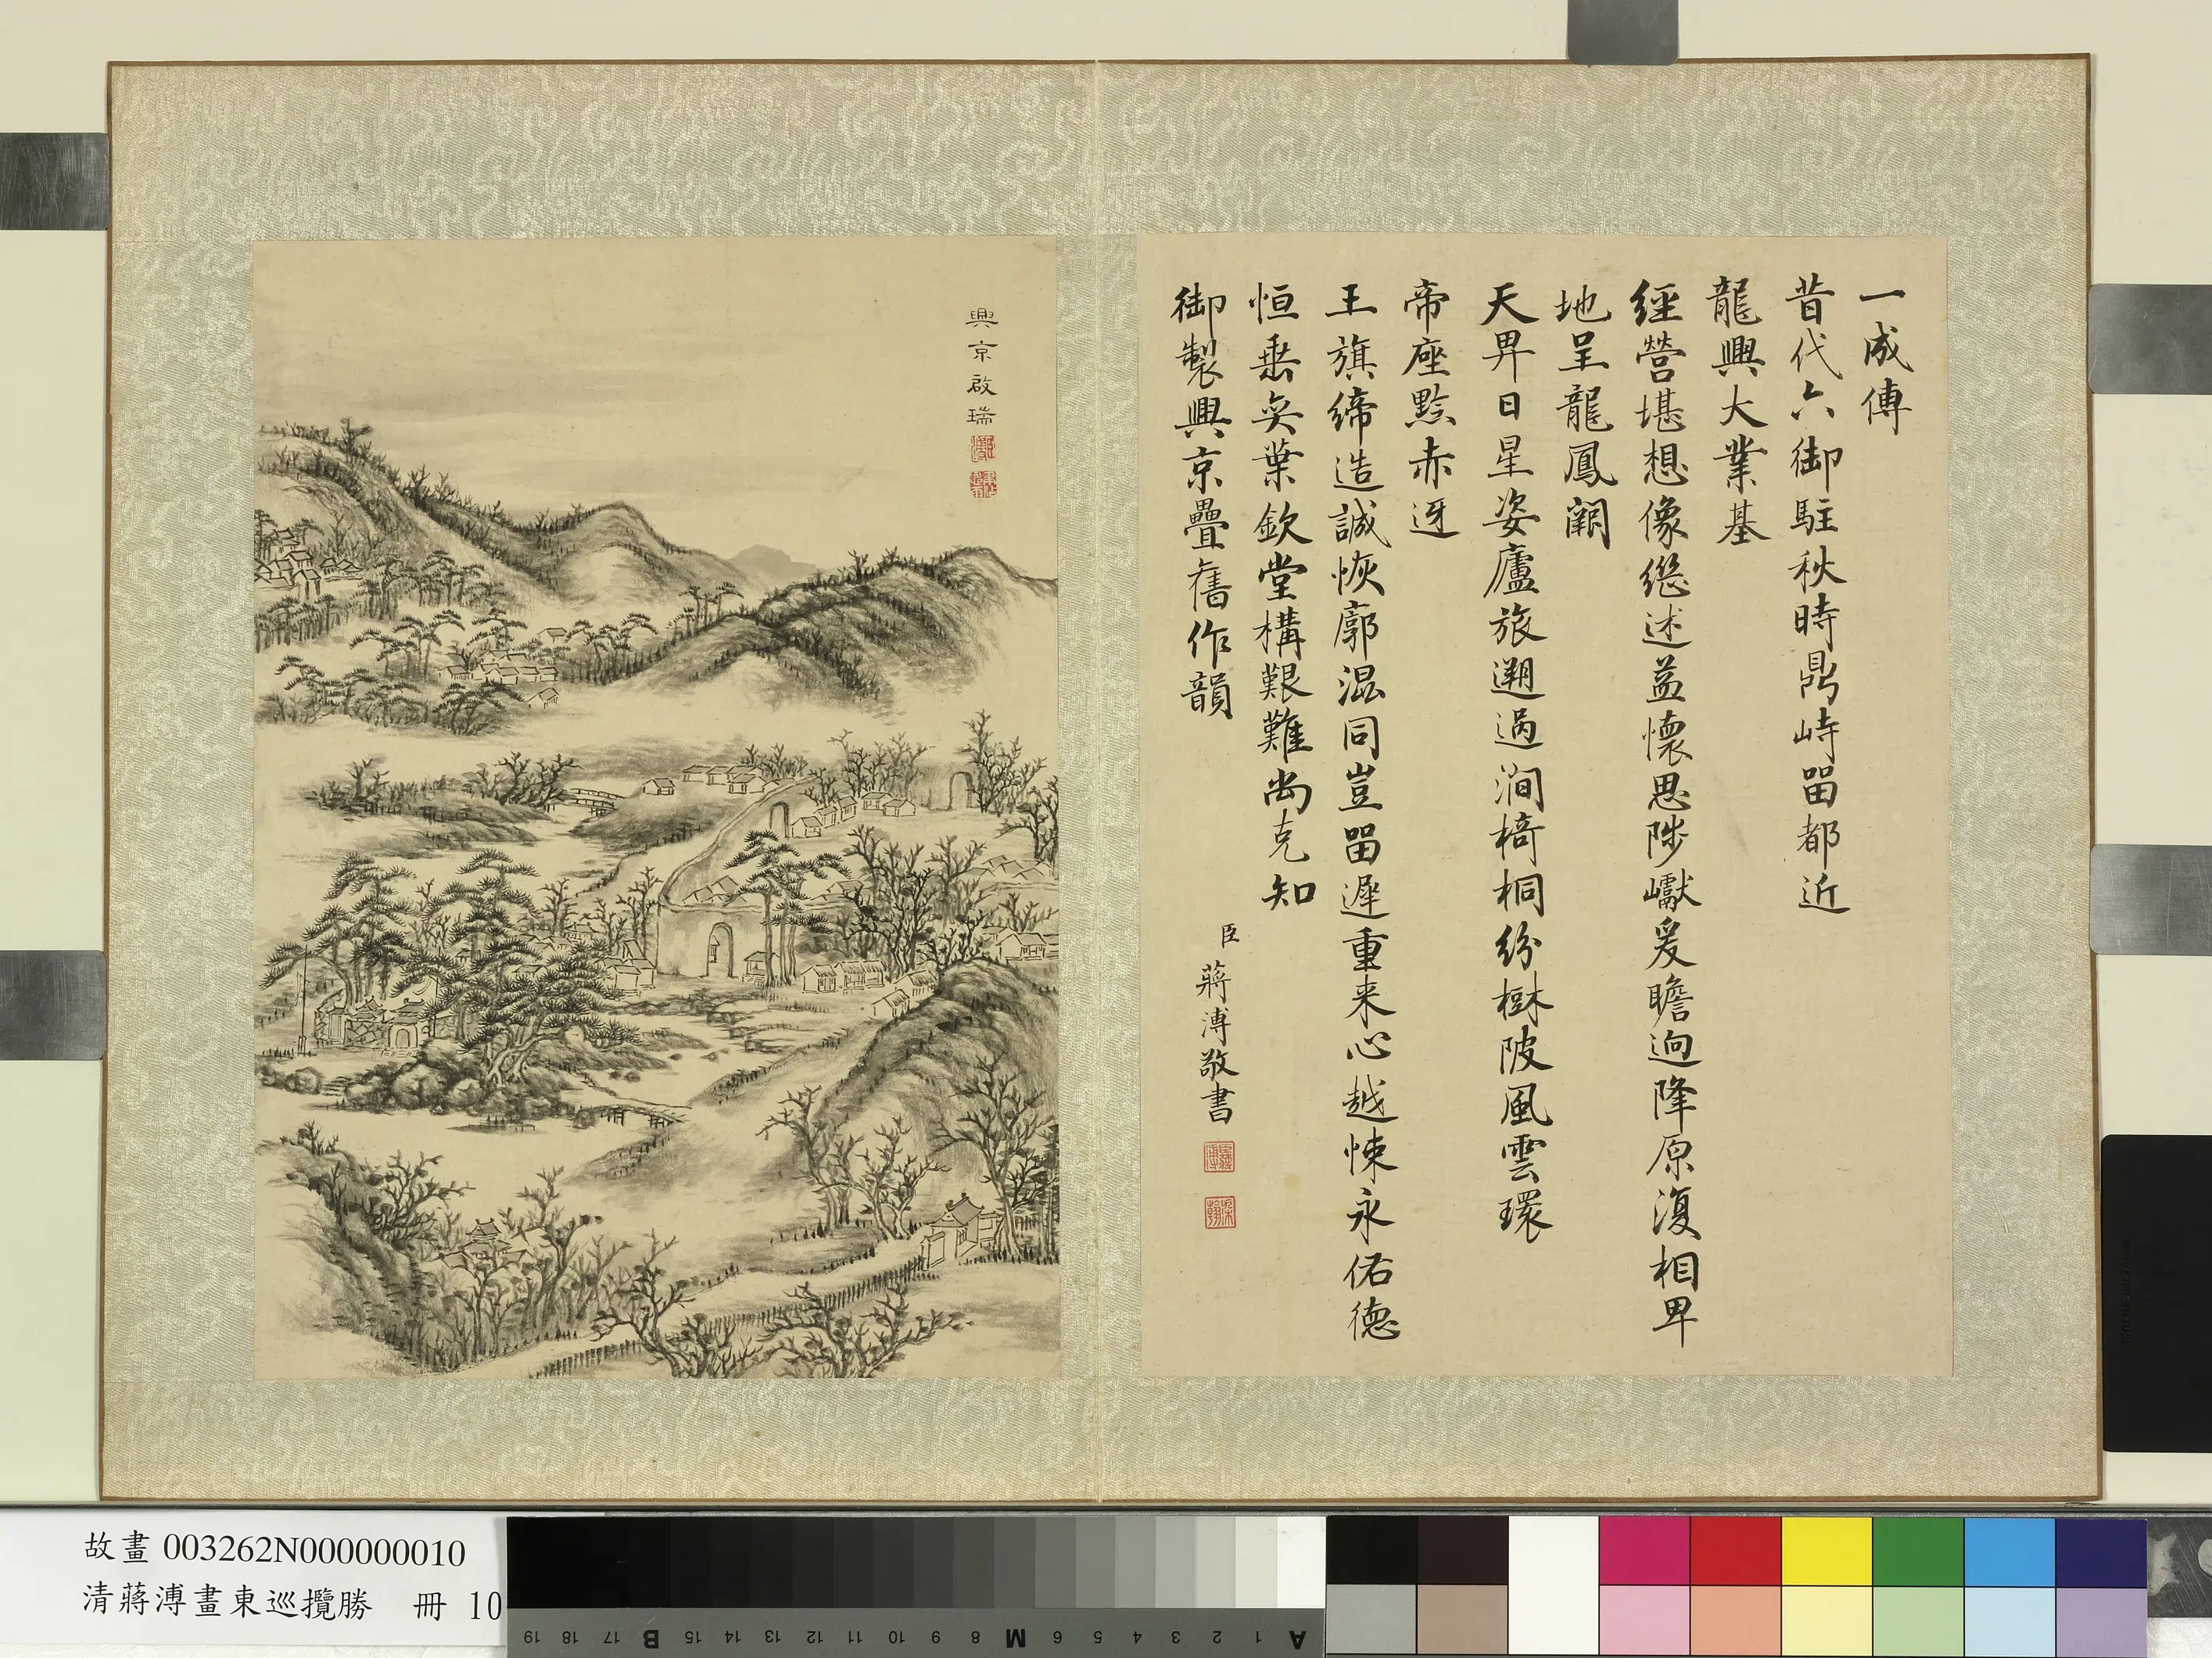 一成傳
昔代六御駐秋時鼎峙畱都近
龍興大業基
經營堪想像繼述益懷思陟巘爰瞻迥降原復相卑
地呈龍鳳闢
天畀日星姿廬旅遡過澗椅桐紛樹陂風雲環
帝座黔赤迓
王旗締造誠恢廓混同豈畱遲重来心越悚永佑德
恒垂奕葉欽堂構艱難尚克知
御製興京疊舊作韻
臣蔣溥敬書
興京啟瑞
故畫 003262N000000010
清蔣溥畫東巡攬勝 冊 10
A 1 2 3 4 5 6 M 8 9 10 11 12 13 14 15 B 17 18 19